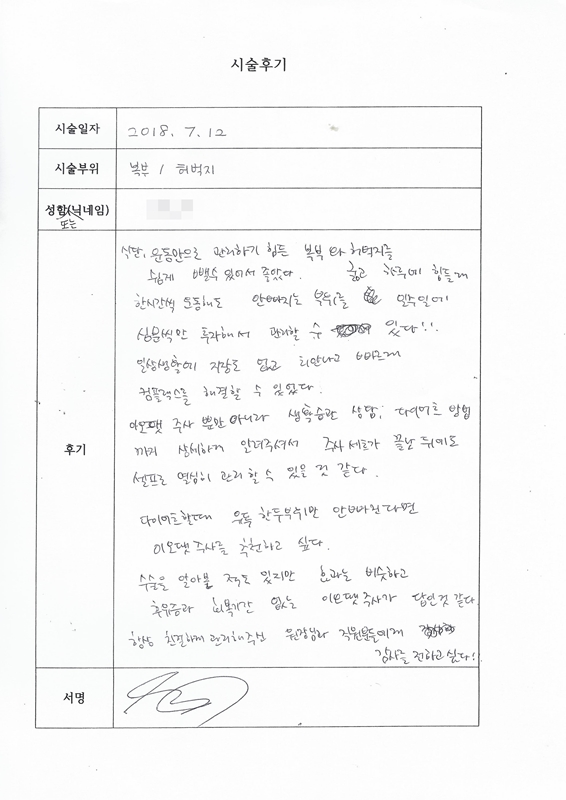 시술후기
시술일자 2018. 7. 12
시술부위 복부 / 허벅지
성함(닉네임)
또는
후기
식단, 운동만으로 관리하기 힘든 복부와 허벅지를
쉽게 뺄수 있어서 좋았다. 굶고 하루에 힘들게
한시간씩 운동해도 안빠지는 부위를 일주일에
십분씩만 투자해서 관리할 수 있다!!
일상생활에 지장도 없고 티안나고 빠르게
컴플렉스를 해결할 수 있었다.
이오뎃 주사 뿐만 아니라 생활습관 상담, 다이어트 방법
까지 상세하게 알려주셔서 주사 세트가 끝난 뒤에도
셀프로 열심히 관리할 수 있을 것 같다.
다이어트할때 유독 한두부위만 안빠진다면
이오뎃주사를 추천하고 싶다.
수술을 알아볼 적도 있지만 효과는 비슷하고
후유증과 회복기간 없는 이오뎃주사가 답인것 같다.
항상 친절하게 관리해주신 원장님과 직원분들에게
감사를 전하고싶다!
서명